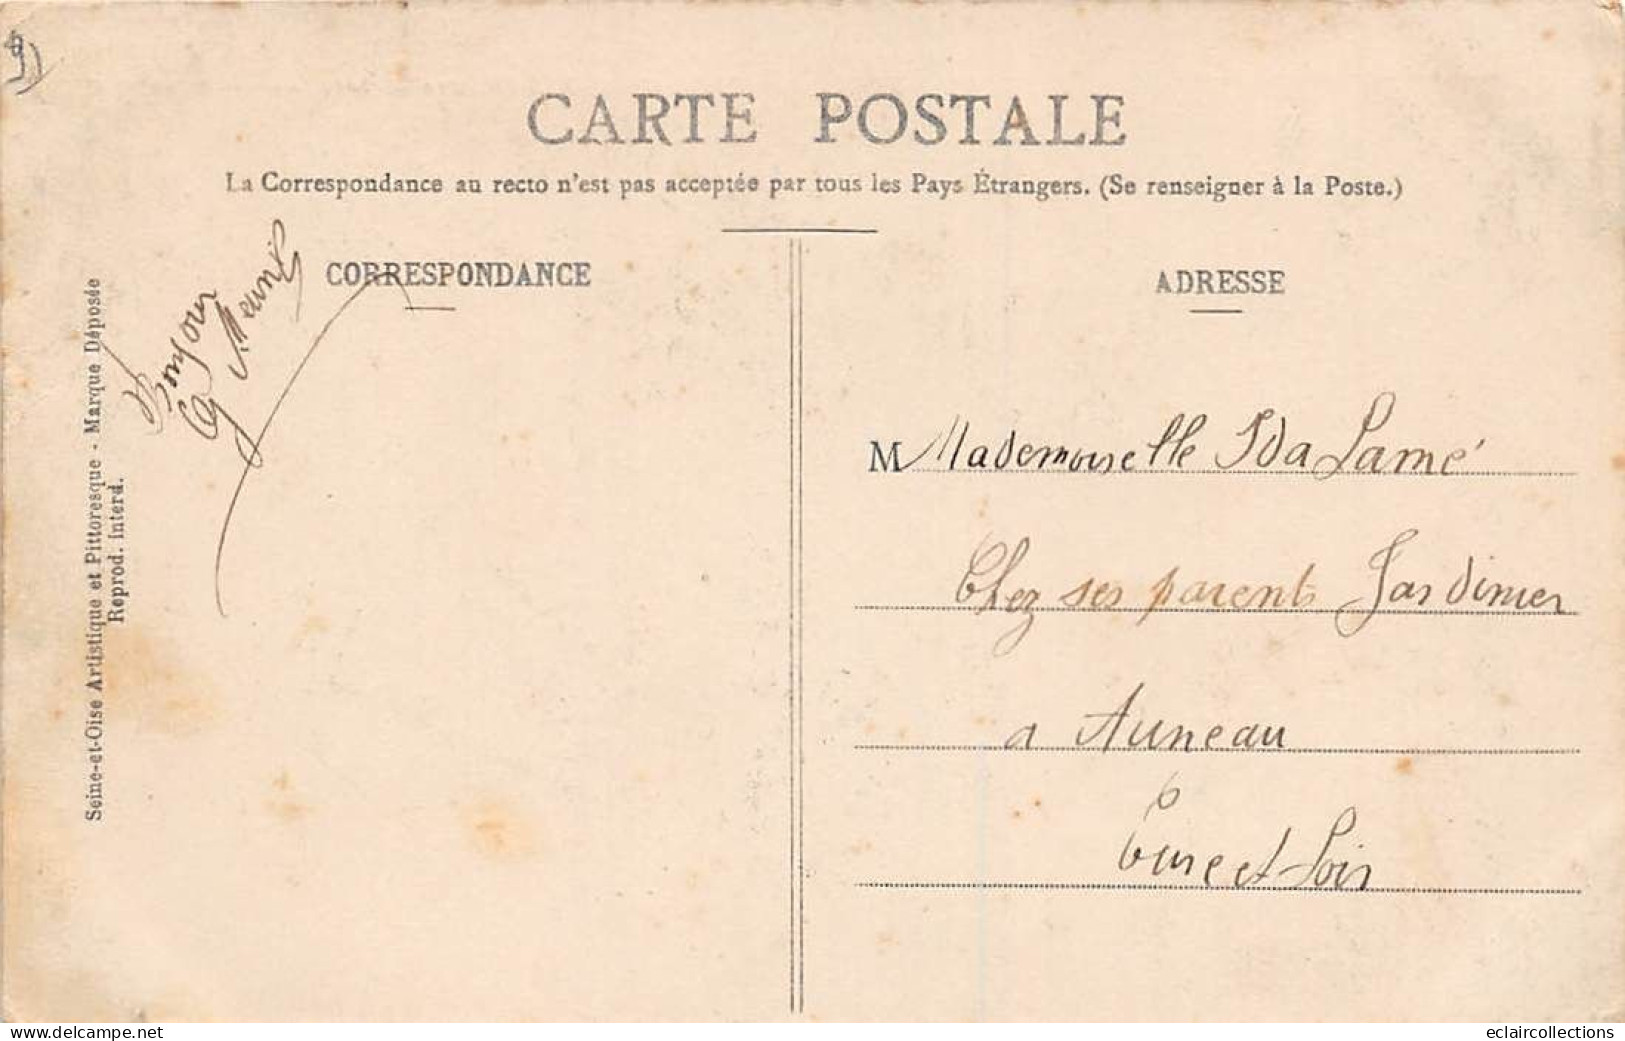 CARTE POSTALE
La Correspondance au recto n'est pas acceptée par tous les Pays Étrangers. (Se renseigner à la Poste.)
CORRESPONDANCE
Bonjour
Seine-et-Oise Artistique et Pittoresque - Marque Déposée
Reprod. interd.
ADRESSE
M Mademoiselle Ida Lamé
Chez ses parents Jardinier
a Auneau
Eure et Loir
www.delcampe.net
eclaircollections